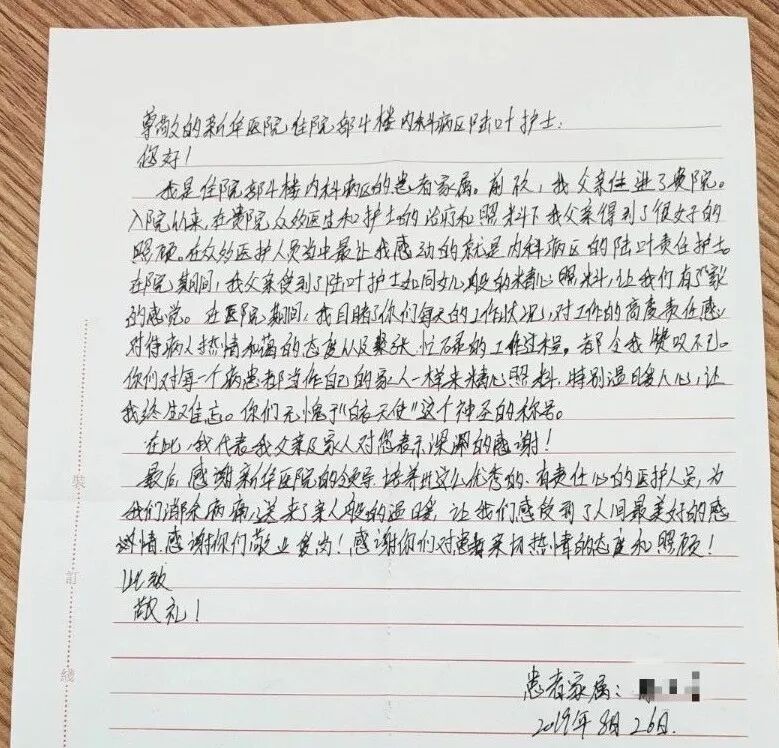 尊敬的新华医院住院部斗楼内科病区陆叶护士:
您好!
我是住院部斗楼内科病区的患者家属。前段,我父亲住进了贵院。
入院以来,在贵院众多医生和护士的治疗和照料下我父亲得到了很好的
照顾。在众多医护人员当中最让我感动的就是内科病区的陆叶责任护士。
在院期间,我父亲受到了陆叶护士如同女儿般的精心照料,让我们有了家
的感觉。在医院期间,我目睹了你们每天的工作状况,对工作的高度责任感,
对待病人热情和蔼的态度以及紧张、忙碌的工作过程。都令我赞叹不已。
你们对每一个病患都当作自己的家人一样来精心照料,特别温暖人心,让
我终生难忘。你们无愧于"白衣天使"这个神圣的称号。
在此,我代表我父亲及家人对您表示深深的感谢!
最后,感谢新华医院的领导,培养出这么优秀的、有责任心的医护人员,为
我们消除病痛,送来了亲人般的温暖,让我们感受到了人间最美好的感
情,感谢你们敬业爱岗!感谢你们对患者亲切热情的态度和照顾!
此致
敬礼!
患者家属:
2019年8月26日.
装
订
线